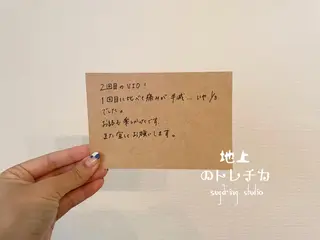 2回目のVIO!
1回目に比べて痛みが半減…いや1/3
でした。
お話も楽しかったです。
また宜しくお願いします。
地上
のトレチカ
sugaring studio